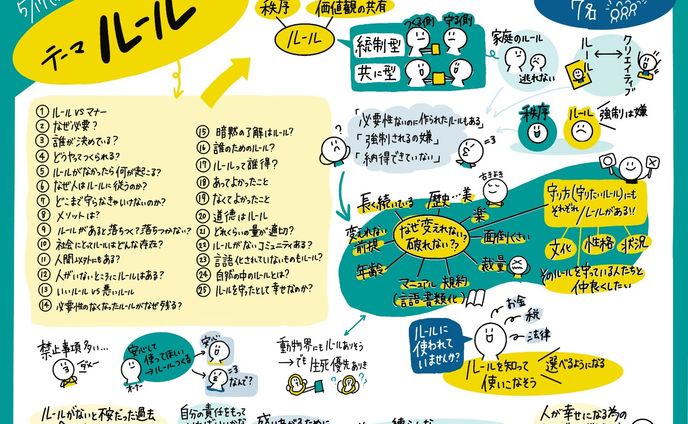 テーマ
ルール
7名
秩序
価値観の共有
ルール
つくる側
守る側
統制型
共に型
家庭のルール
逃れない
ルール
クリエイティブ
秩序
ルール
強制は嫌
① ルール vs マナー
② なぜ必要？
③ 誰が決めている？
④ どうやってつくられる？
⑤ ルールがなかったら何が起こる？
⑥ なぜ人はルールに従うのか？
⑦ どこまで守らなきゃいけないのか？
⑧ メリットは？
⑨ ルールがあると落ちつく？落ちつかない？
⑩ 社会にとってルールはどんな存在？
⑪ 人間以外にもある？
⑫ 人がいないところにルールはある？
⑬ いいルール vs 悪いルール
⑭ 必要性のなくなったルールがなぜ残る？
⑮ 暗黙の了解はルール？
⑯ 誰のためのルール？
⑰ ルールって誰得？
⑱ あってよかったこと
⑲ なくてよかったこと
⑳ 道徳はルール
㉑ どれくらいの量が適切？
㉒ ルールがないコミュニティある？
㉓ 言語化されていないものもルール？
㉔ 自然の中のルールとは？
㉕ ルールを守ったとして幸せなのか？
「必要性ないのに作られたルールもある」
「強制されるの嫌」
「納得できていない」
長く続いている
歴史…美
古きよき
楽
面倒くさい
変えれない前提
なぜ変えれない？
破れない？？
年齢
裁量
マニュアル 規約
(言語書類化)
守り方(守りたいルール)にも
それぞれルールがある！！
文化
性格
状況
そのルールを守っている人たちと
仲良くしたい
禁止事項多い…
安心して
使ってほしい
ルールつくる
オーナー
安心
なんで？
動物界にもルールありそう
→でも生死優先ありき
ルールに
使われて
いませんか？
お金
税
法律
ルールを知って
使いこなそう
選べるようになる
ルールがないと不安だった過去
自分の責任をもって
人が幸せになる為の